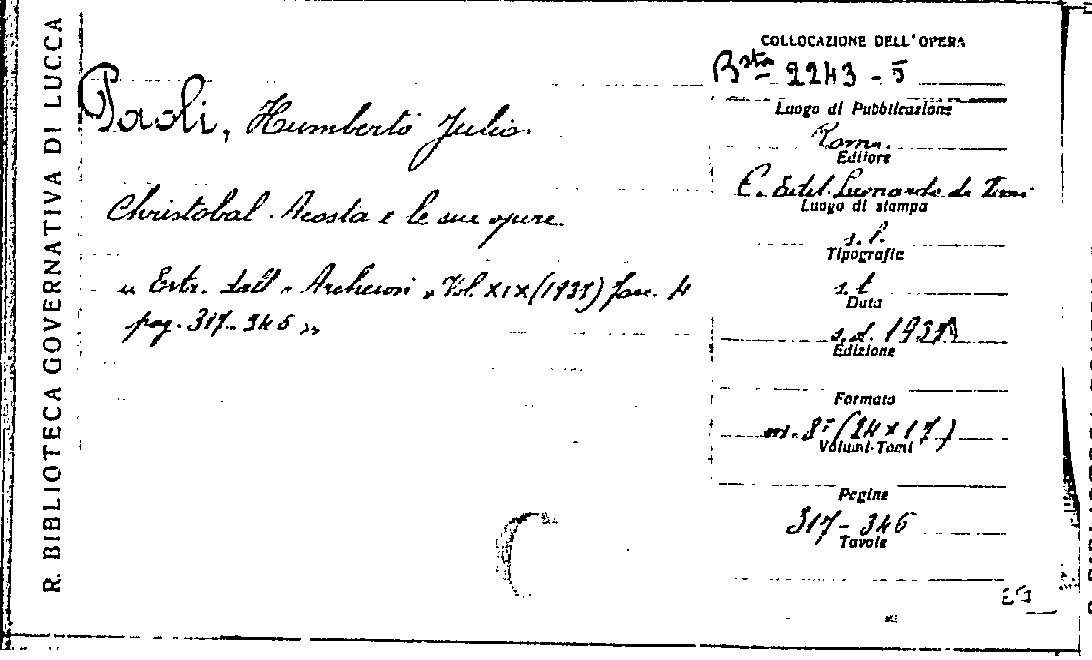 R. BIBLIOTECA GOVERNATIVA DI LUCCA
Paoli, Humberto Julio.
Christobal Acosta e le sue opere.
« Estr. dall' « Archeion » Vol. XIX (1937) fasc. 4
pag. 317-345 »
COLLOCAZIONE DELL'OPERA
Bsta 2243-5
Luogo di Pubblicazione
Roma.
Editore
C. Edit. Leonardo da Vinci
Luogo di stampa
s.l.
Tipografia
s.t
Data
s.d. 1937
Edizione
Formato
in-8° (24x17)
Volumi-Tomi
Pagine
317-345
Tavole